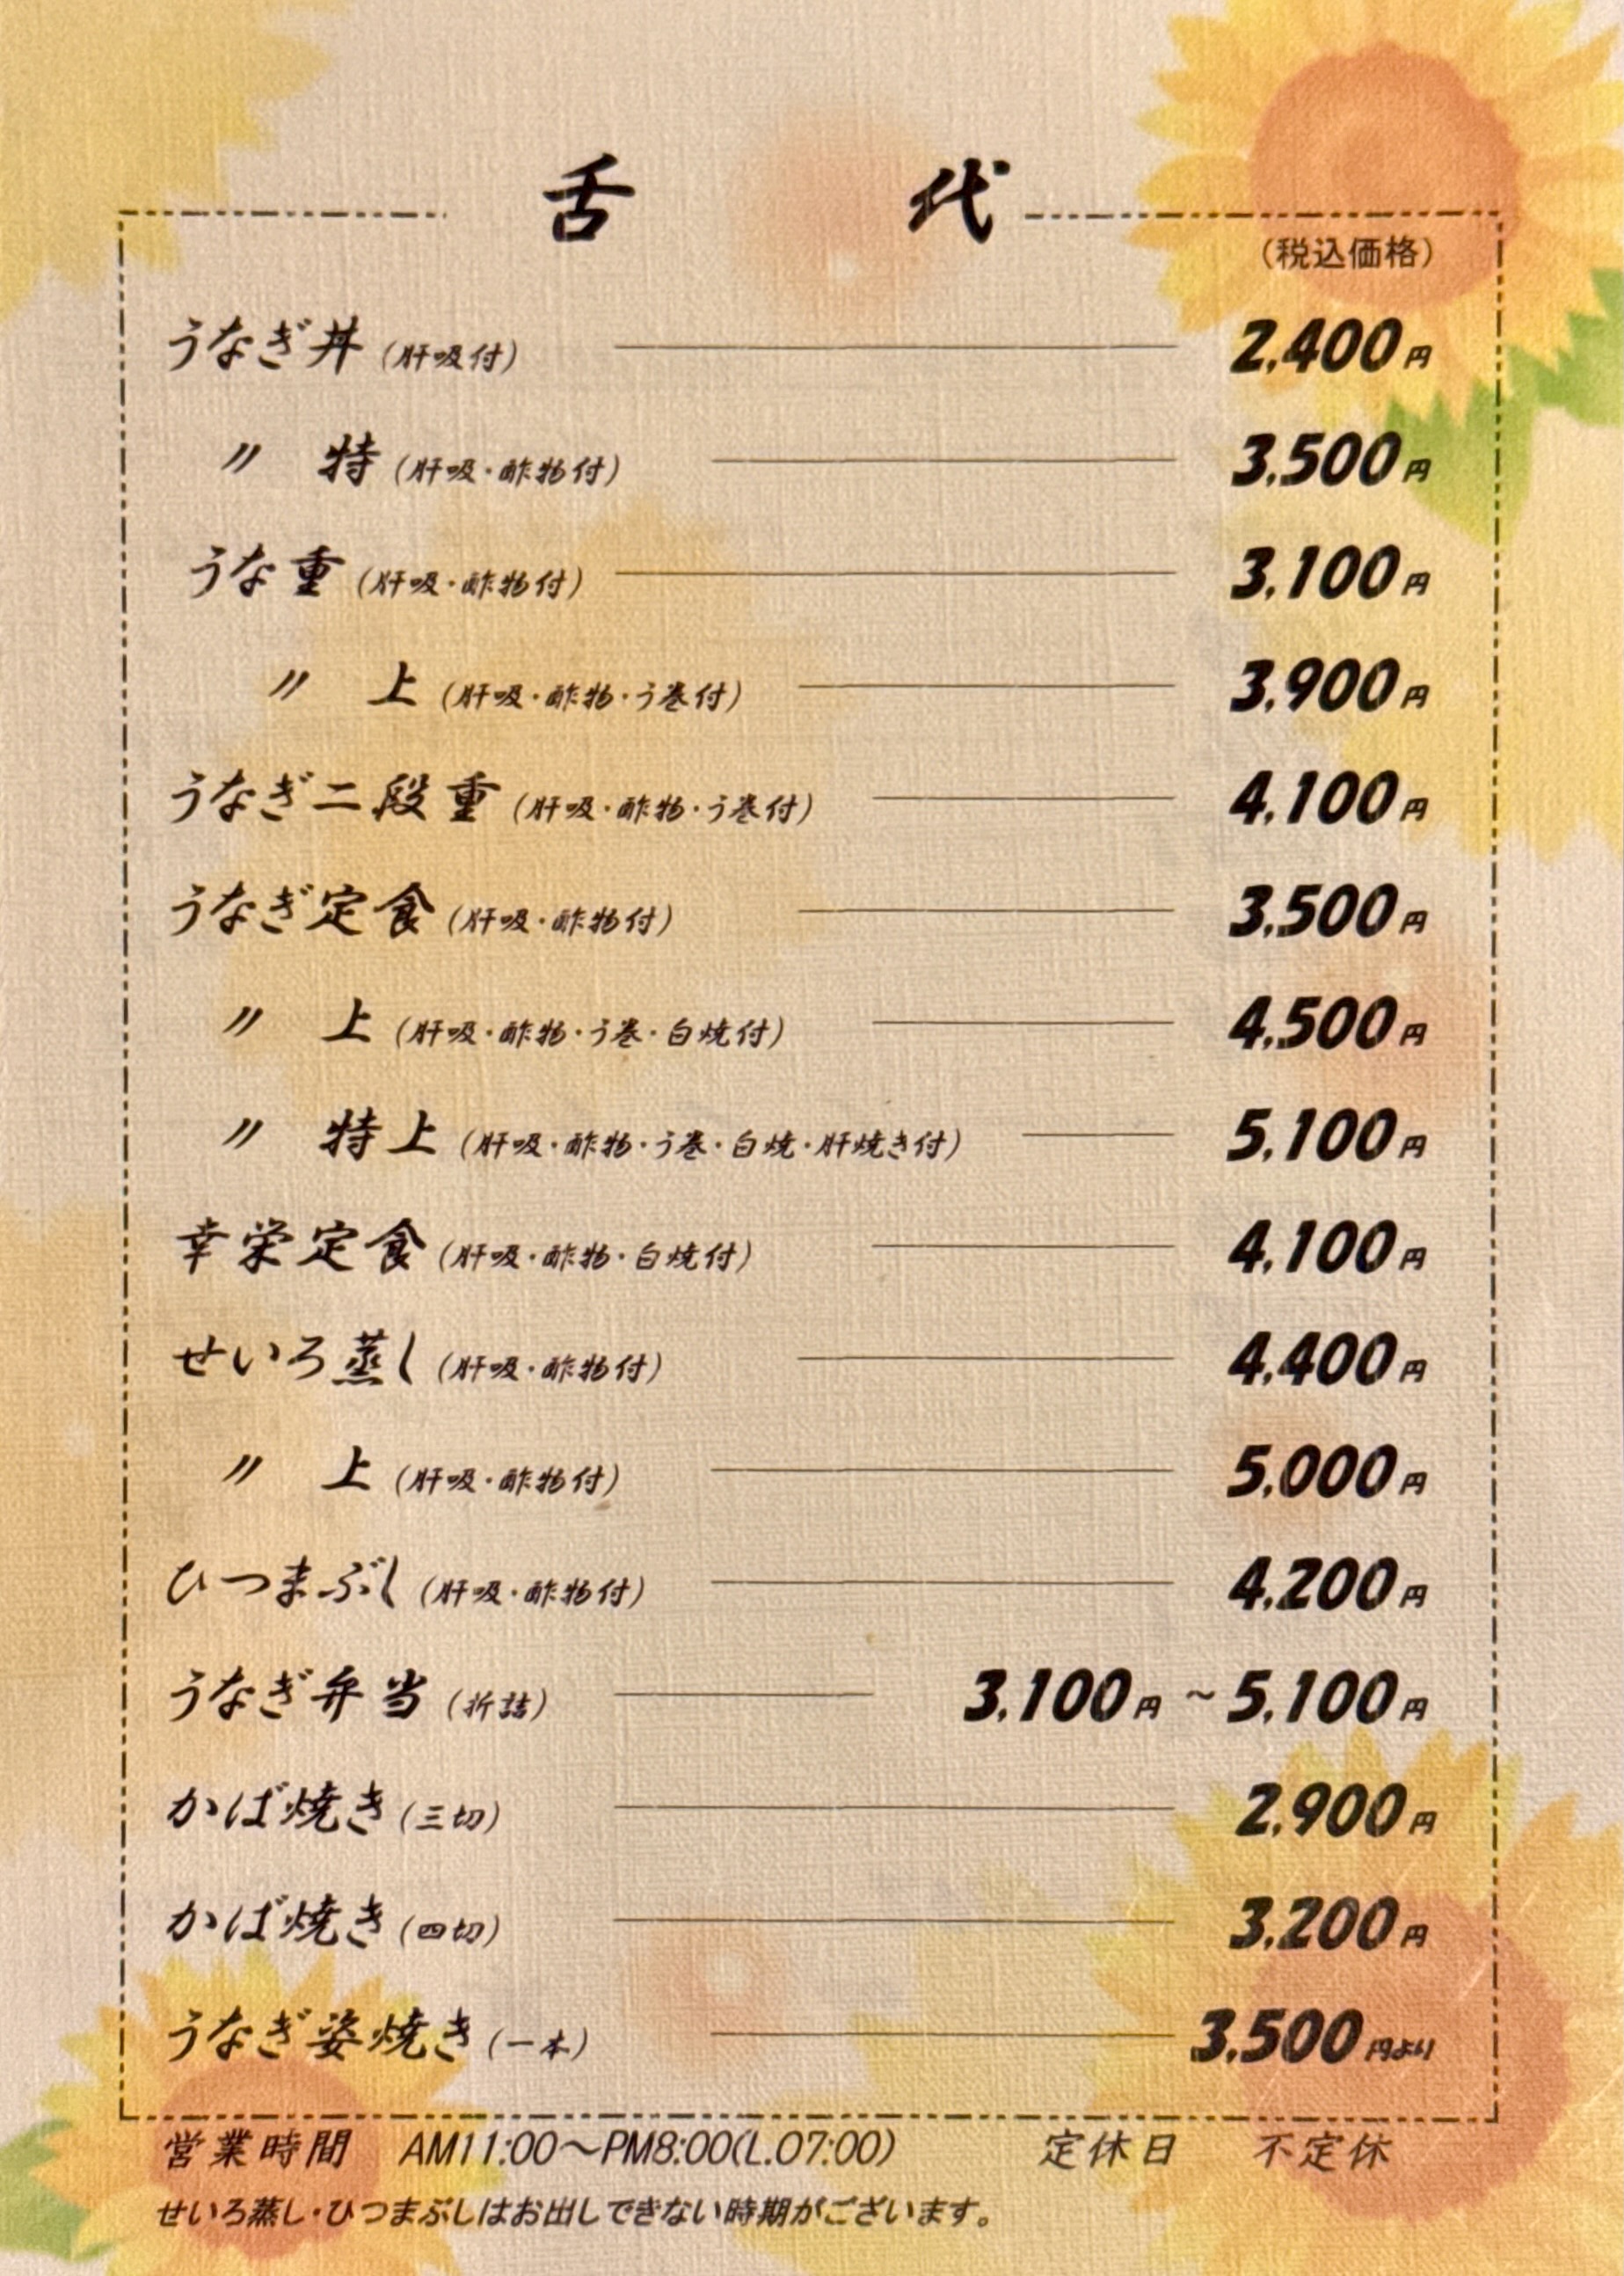 舌代
(税込価格)
うなぎ丼(肝吸付) 2,400円
〃 特(肝吸・酢物付) 3,500円
うな重(肝吸・酢物付) 3,100円
〃 上(肝吸・酢物・う巻付) 3,900円
うなぎ二段重(肝吸・酢物・う巻付) 4,100円
うなぎ定食(肝吸・酢物付) 3,500円
〃 上(肝吸・酢物・う巻・白焼付) 4,500円
〃 特上(肝吸・酢物・う巻・白焼・肝焼き付) 5,100円
幸栄定食(肝吸・酢物・白焼付) 4,100円
せいろ蒸し(肝吸・酢物付) 4,400円
〃 上(肝吸・酢物付) 5,000円
ひつまぶし(肝吸・酢物付) 4,200円
うなぎ弁当(折詰) 3,100円~5,100円
かば焼き(三切) 2,900円
かば焼き(四切) 3,200円
うなぎ姿焼き(一本) 3,500円より
営業時間 AM11:00〜PM8:00(L.O7:00) 定休日 不定休
せいろ蒸し・ひつまぶしはお出しできない時期がございます。